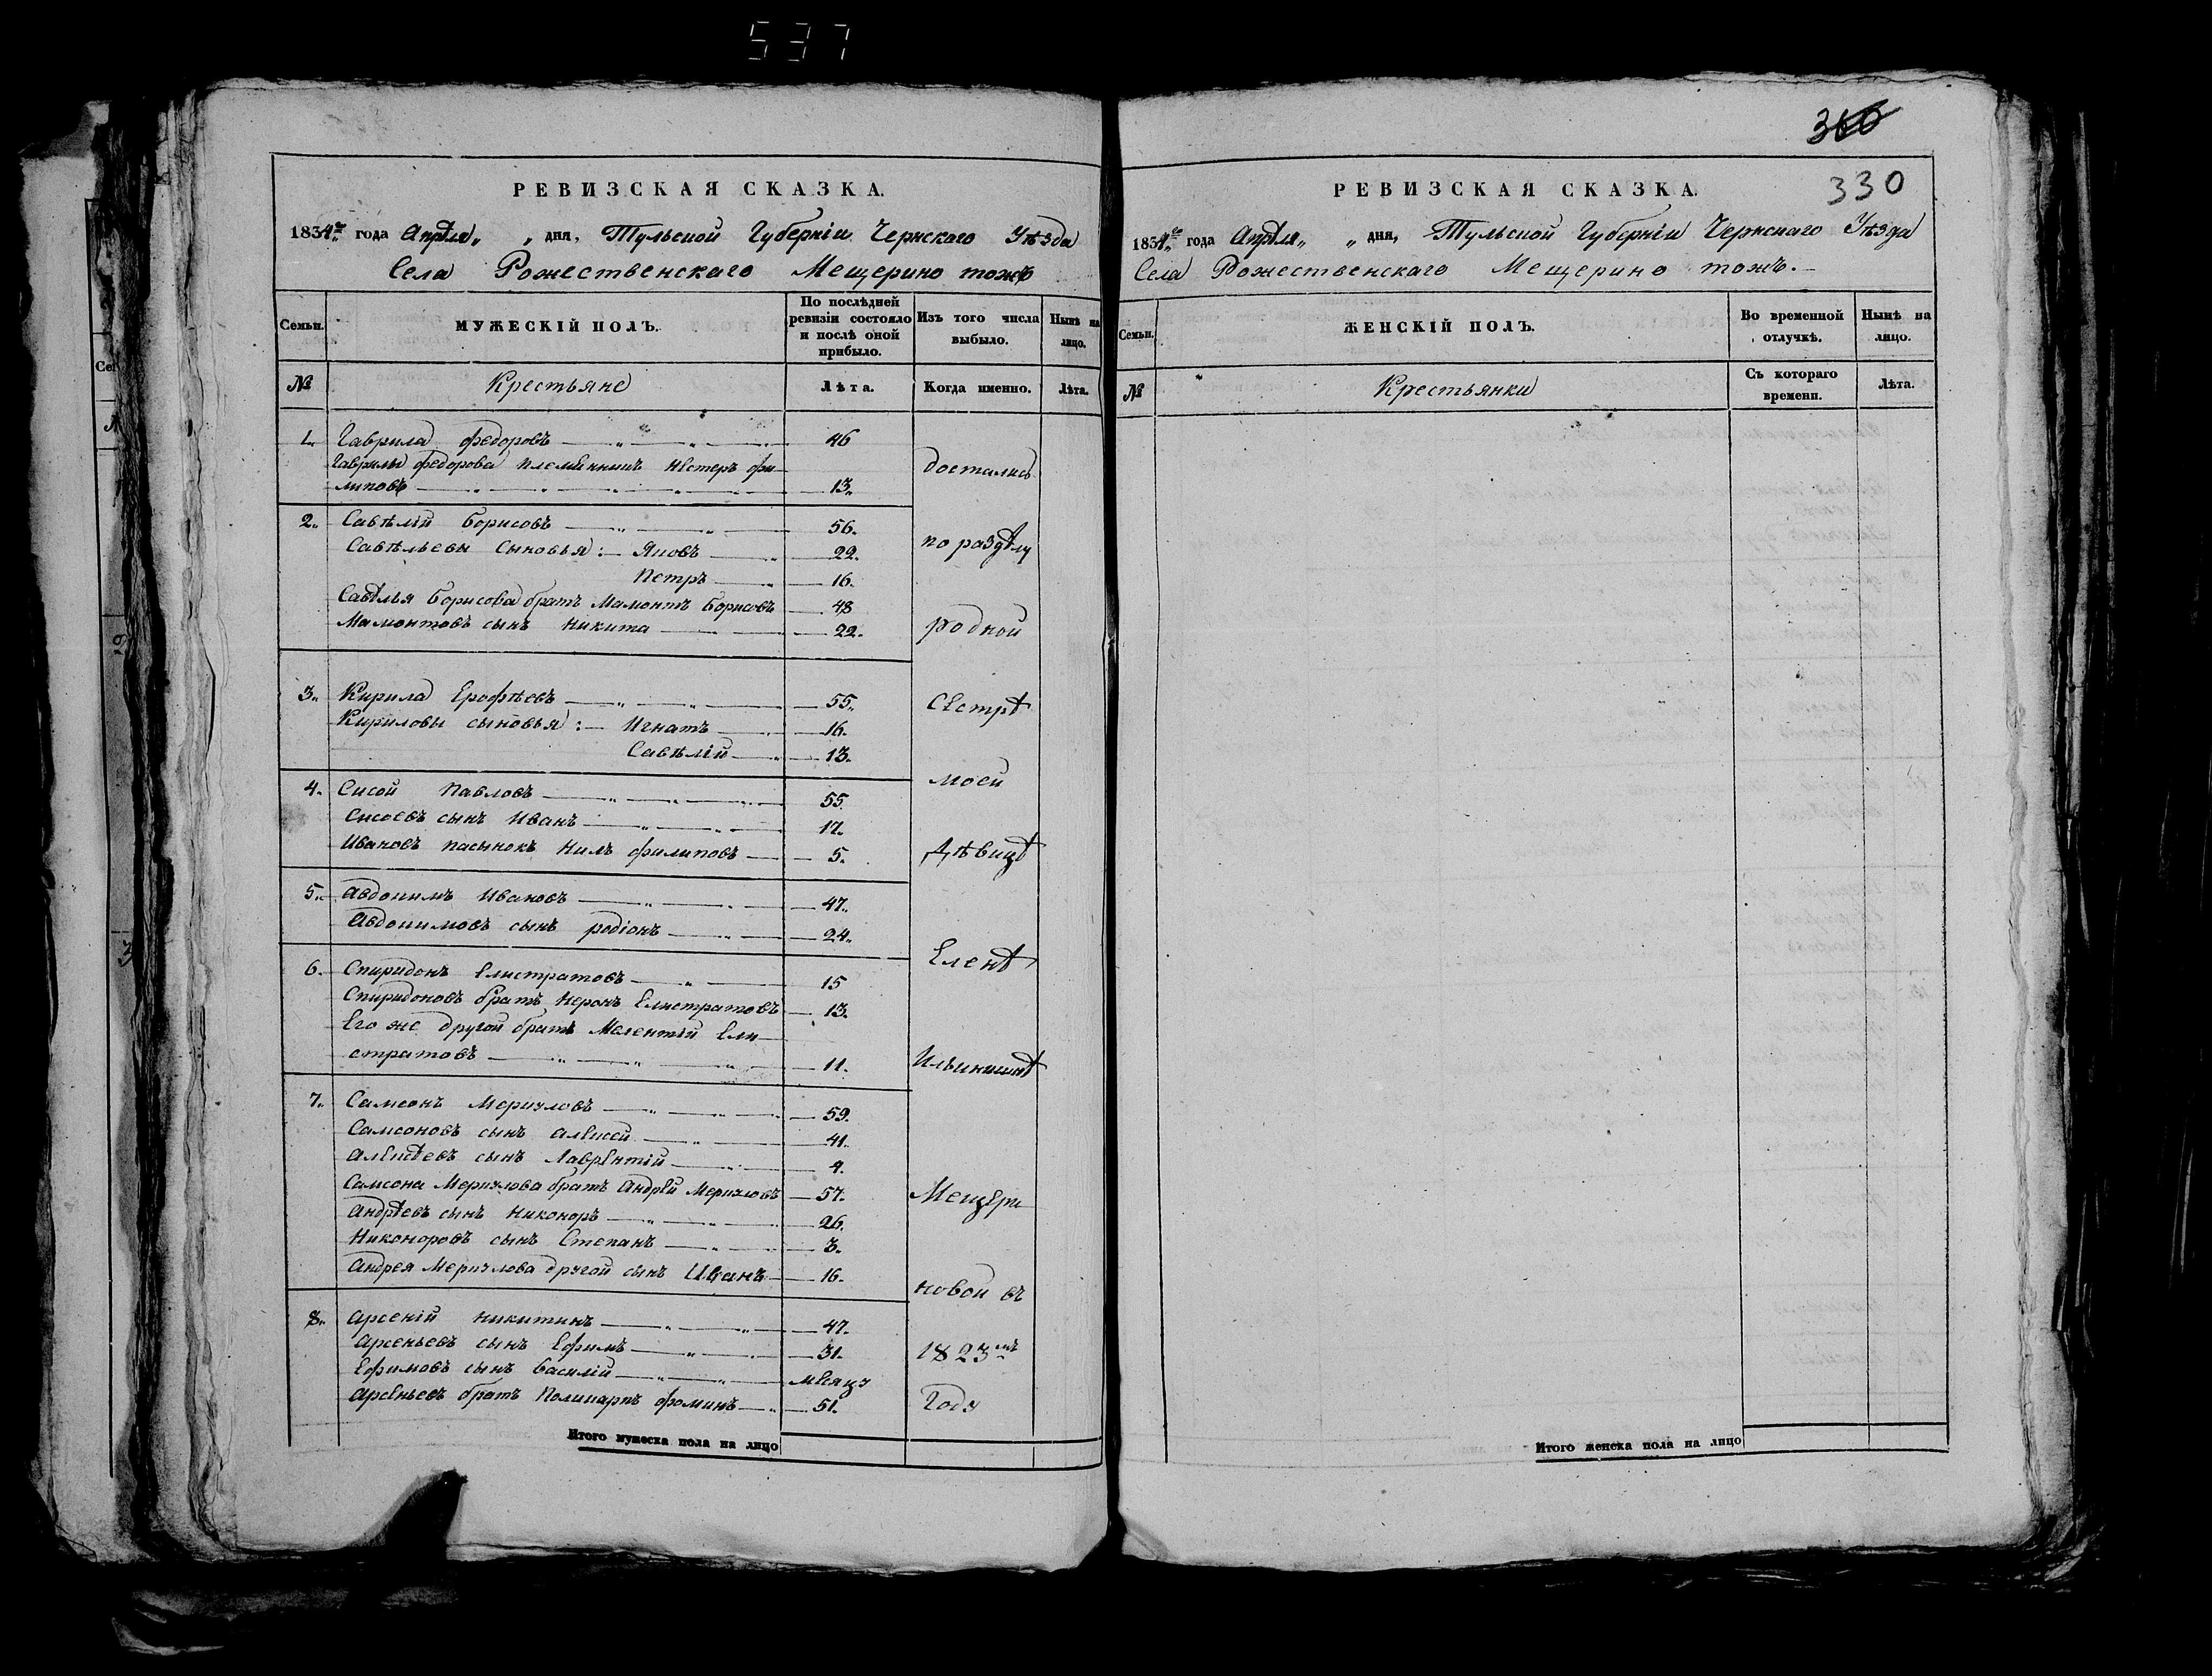 537
РЕВИЗСКАЯ СКАЗКА.
1834го года Апрѣля „ „ дня, Тульской Губерніи Чернскаго Уѣзда
Села Рожественскаго Мещерино тожъ
Семьи.
МУЖЕСКІЙ ПОЛЪ.
По послѣдней ревизіи состояло и послѣ оной прибыло.
Изъ того числа выбыло.
Нынѣ на лицо.
№
Крестьяне
Лѣта.
Когда именно.
Лѣта.
1. Гаврила Федоровъ 46
Гаврилы Федорова племянникъ Нестеръ Фи
липовъ 13.
2. Савѣлій Борисовъ 56.
Савѣльевы сыновья: Яковъ 22.
Петръ 16.
Савѣлья Борисова братъ Мамонтъ Борисовъ 48
Мамонтовъ сынъ Никита 22.
3. Кирила Ерофѣевъ 55.
Кириловы сыновья: Игнатъ 16.
Савѣлій 13.
4. Сисой Павловъ 55.
Сисоевъ сынъ Иванъ 17.
Ивановъ пасынокъ Нилъ Филиповъ 5.
5. Авдокимъ Ивановъ 47.
Авдокимовъ сынъ Родіонъ 24.
6. Спиридонъ Елистратовъ 15
Спиридоновъ братъ Неронъ Елистратовъ 13.
Его же другой братъ Мелентій Ели
стратовъ 11.
7. Самсонъ Меркуловъ 59.
Самсоновъ сынъ Алексей 41.
Алексѣевъ сынъ Лаврентій 4.
Самсона Меркулова братъ Андрей Меркуловъ 57.
Андрѣевъ сынъ Никоноръ 26.
Никоноровъ сынъ Степанъ 3.
Андрея Меркулова другой сынъ Иванъ 16.
8. Арсеній Никитинъ 47.
Арсеньевъ сынъ Ефимъ 31.
Ефимовъ сынъ Василій месяцъ
Арсеньевъ братъ Поликарпъ Фоминъ 51.
достались
по раздѣлу
родной
сестрѣ
моей
дѣвицѣ
Еленѣ
Ильинишнѣ
Мещери
новой въ
1823мъ
Году
Итого мужеска пола на лицо
360
330
РЕВИЗСКАЯ СКАЗКА.
1834го года Апрѣля „ „ дня, Тульской Губерніи Чернскаго Уѣзда
Села Рожественскаго Мещерино тожъ.
Семьи.
ЖЕНСКІЙ ПОЛЪ.
Во временной отлучкѣ.
Нынѣ на лицо.
№
Крестьянки
Съ котораго времени.
Лѣта.
Итого женска пола на лицо